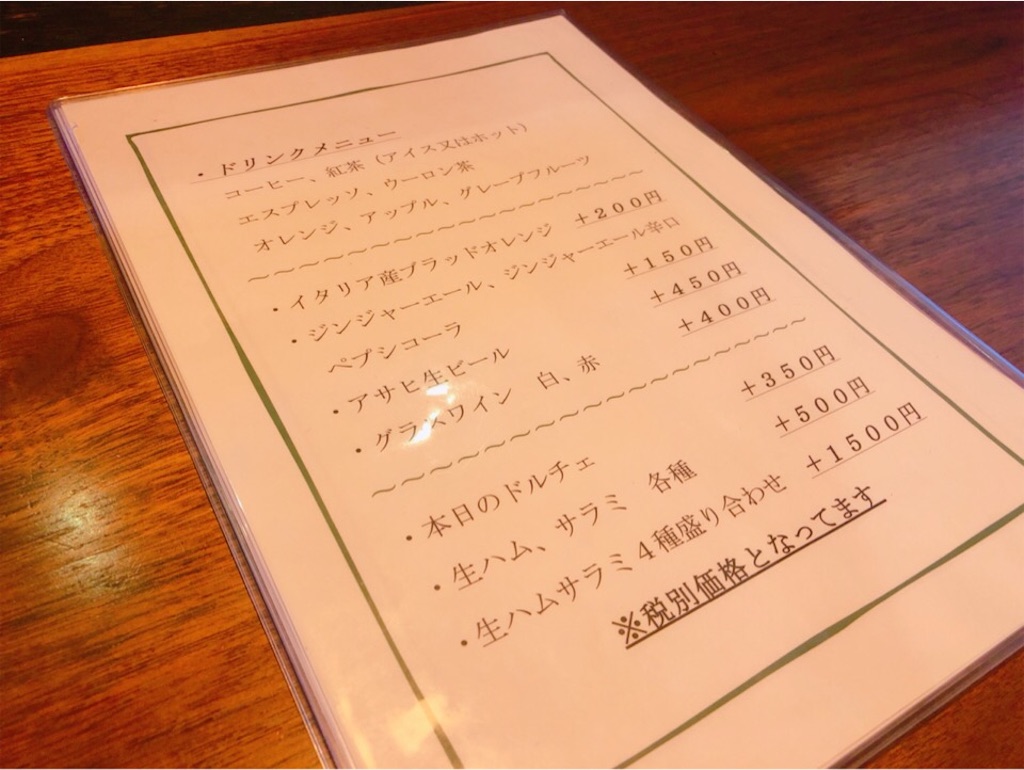 ・ドリンクメニュー
コーヒー、紅茶（アイス又はホット）
エスプレッソ、ウーロン茶
オレンジ、アップル、グレープフルーツ
～～～～～～～～～～～～～～～～～～
・イタリア産ブラッドオレンジ +200円
・ジンジャーエール、ジンジャーエール辛口
ペプシコーラ +150円
・アサヒ生ビール +450円
・グラスワイン 白、赤 +400円
～～～～～～～～～～～～～～～～～～
・本日のドルチェ +350円
・生ハム、サラミ 各種 +500円
・生ハムサラミ４種盛り合わせ +1500円
※税別価格となってます